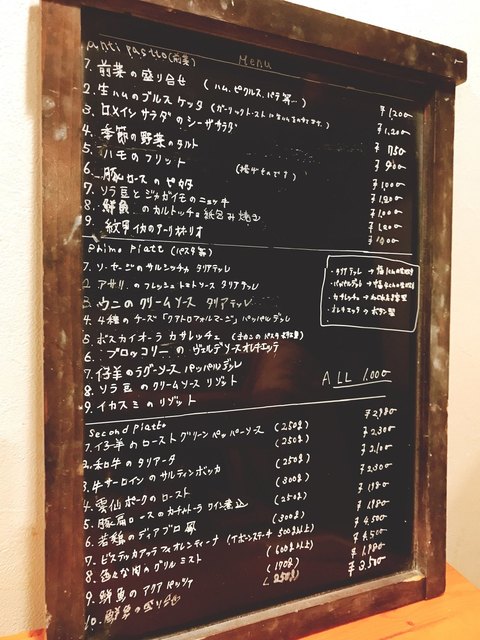 antipastto(前菜) Menu
1. 前菜の盛り合せ (ハム、ピクルス、パテ等…) ¥1200
2. 生ハムのブルスケッタ ¥1,200
3. ロメインサラダのシーザサラダ ¥750
4. 季節の野菜のタルト ¥900
5. ハモのフリット ¥1000
6. 豚ロースの
7. ソラ豆とジャガイモのニョッキ ¥1000
8. 鮮魚のカルトッチョ紙包み焼き
9. 紋甲イカのアーリオ
Primo Piatt (パスタ等)
1. ソーセージのサルシッチャ タリアテッレ
2. アサリのフレッシュトマトソース タリアテッレ
3. ウニのクリームソース タリアテッレ
4. 4種のチーズ「クアトロフォルマージ」パッパルデッレ
5. ボスカイオーラ カサレッチェ
6. ブロッコリーのヴェルデソースオレキエッテ
7. 仔羊のラグーソース パッパルデッレ
8. ソラ豆のクリームソース リゾット
9. イカスミのリゾット
・タリアテッレ →
・パッパルデッレ →
・カサレッチェ →
・オレキエッテ →
ALL 1,000
Second Piatto
1. 仔羊のロースト グリーンペッパーソース (250g) ¥2,980
2. 和牛のタリアータ (250g) ¥2,300
3. 牛サーロインのサルティンボッカ (250g) ¥2,100
4. 雲仙ポークのロースト (300g) ¥2300
5. 豚肩ロースのカチャトーラ ワイン煮込 (250g) ¥1980
6. 若鶏のディアブロ風 (300g) ¥1,980
7. ビステッカアッラフィオレンティーナ (Tボーンステーキ 500g以上) ¥4,500
8. 色々な肉のグリルミスト (600g以上) ¥4,500
9. 鮮魚のアクアパッツァ (190g) ¥1,980
10. 鮮魚の盛り合せ (250g) ¥3,500